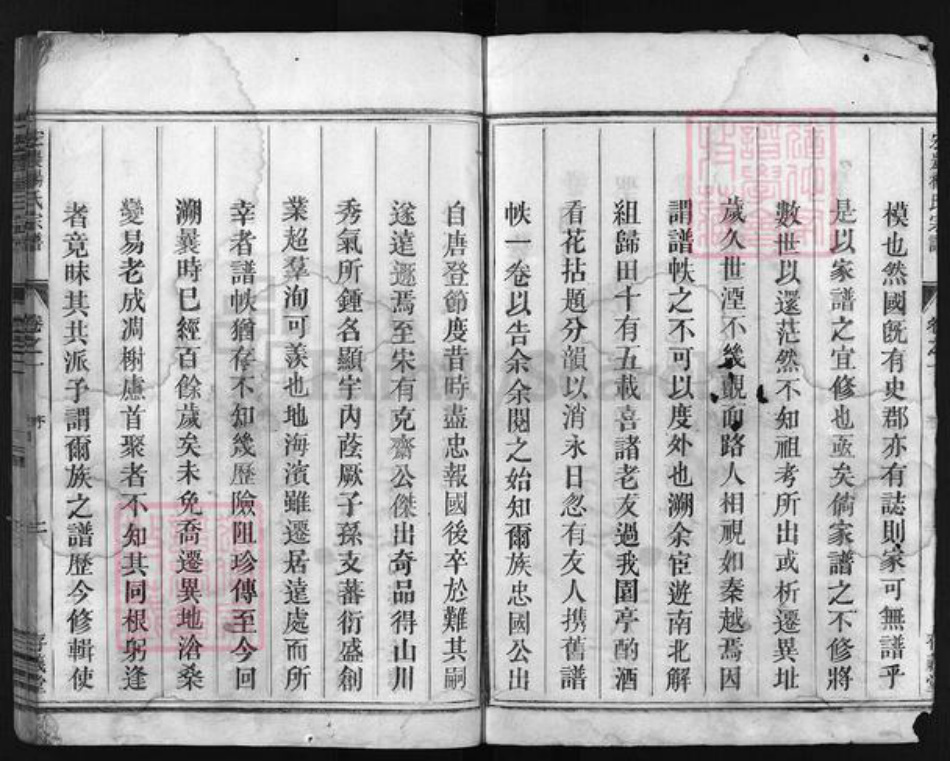 模也然國旣有史郡亦有誌則家可無譜乎
是以家譜之宜修也亟矣倘家譜之不修將
數世以還茫然不知祖考所出或析遷異址
歲久世湮不幾覿面路人相視如秦越焉因
謂譜帙之不可以度外也溯余宦遊南北解
組歸田十有五載喜諸老友過我園亭酌酒
看花拈題分韻以消永日忽有友人携舊譜
帙一卷以告余余閱之始知爾族忠國公出
自唐登節度昔時盡忠報國後卒於難其嗣
遂遠遯焉至宋有克齋公傑出奇品得山川
秀氣所鍾名顯宇內蔭厥子孫支蕃衍盛創
業超羣洵可羨也地海濱雖遷居遠處而所
幸者譜帙猶存不知幾歷險阻珍傳至今回
溯曩時已經百餘歲矣未免喬遷異地滄桑
變易老成凋榭廬首聚者不知其同根躬逢
者竟昧其共派予謂爾族之譜歷今修輯使
氏宗譜
卷之一
存義堂